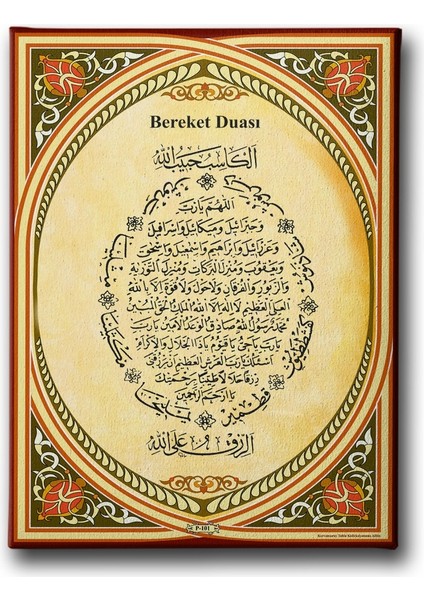 Bereket Duası
الكاسب حبيب الله
اللهم يا رب
وجبرائيل وميكائيل واسرافيل
وعزرائيل وابراهيم واسمعيل واسحق
ويعقوب ومنزل البركات ومنزل التورية
والزبور والفرقان ولا حول ولا قوة الا بالله
العلي العظيم لا اله الا الله الملك الحق المبين
محمد رسول الله صادق الوعد الامين يا رب
يا رب يا حي يا قيوم يا ذا الجلال والاكرام
اسئلك يا رب العرش العظيم ان ترزقني
رزقا حلالا طيبا برحمتك
يا ارحم الراحمين
قطمير
الرزق على الله
P-101